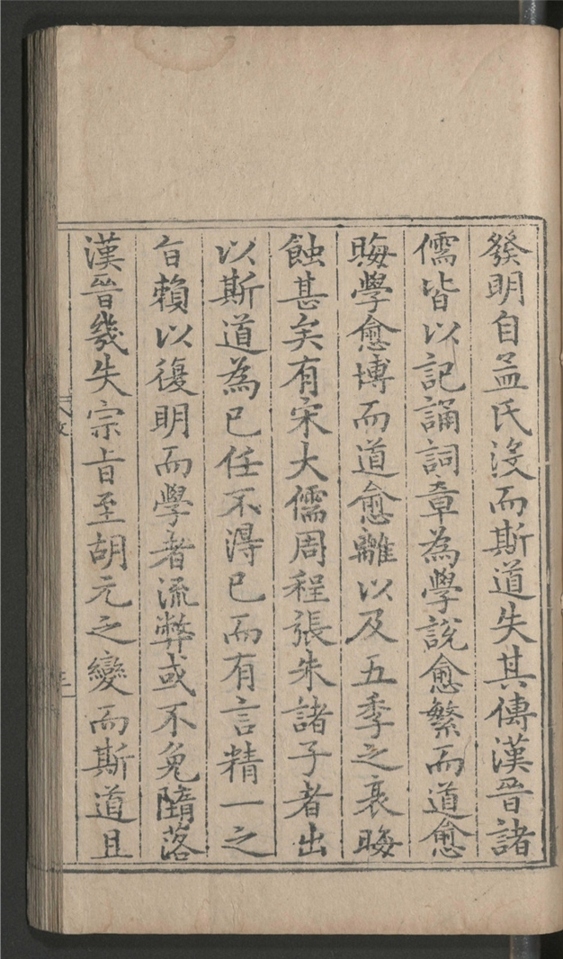 發明自孟氏沒而斯道失其傳漢晉諸
儒皆以記誦詞章為學說愈繁而道愈
晦學愈博而道愈離以及五季之衰晦
蝕甚矣有宋大儒周程張朱諸子者出
以斯道為己任不得已而有言精一之
旨賴以復明而學者流弊或不免隨落
漢晉幾失宗旨至胡元之變而斯道且